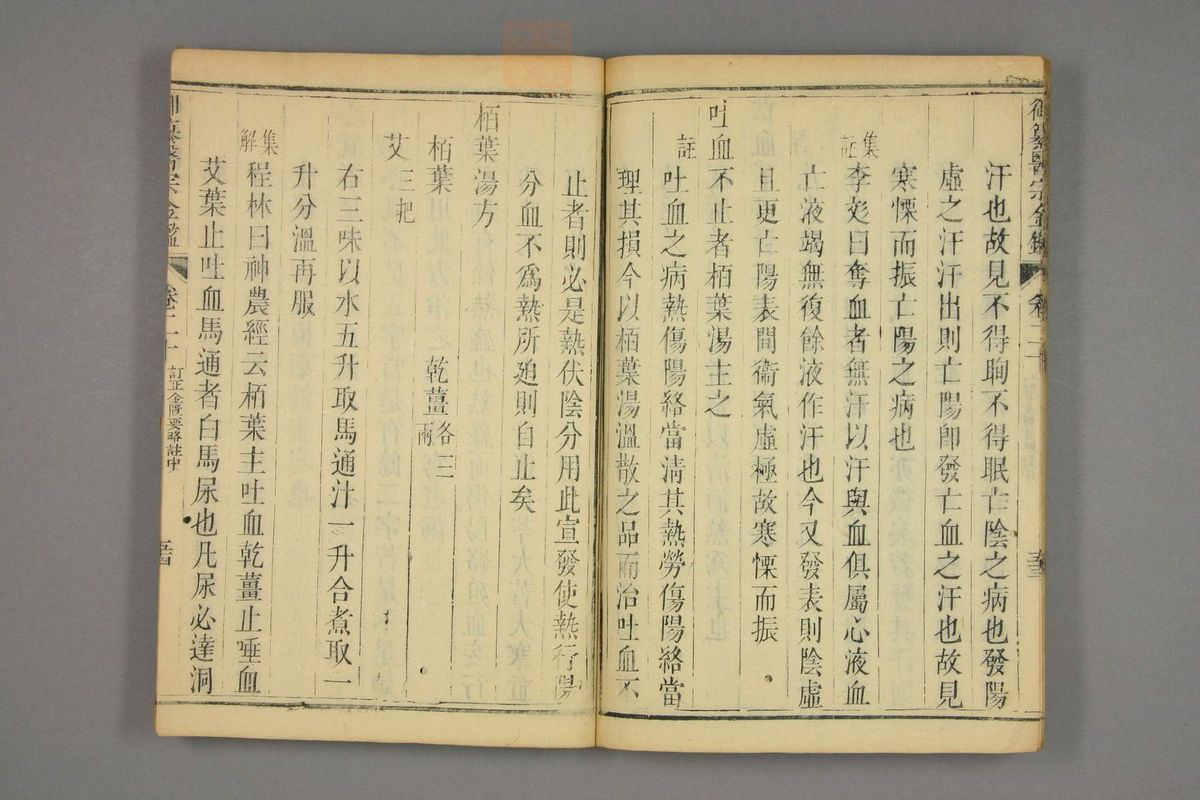 御纂醫宗金鑑 卷二十 五三
汗也故見不得眴不得眠亡陰之病也發陽
虛之汗汗出則亡陽卽發亡血之汗也故見
寒慄而振亡陽之病也
集註 李彣曰奪血者無汗以汗與血俱屬心液血
亡液竭無復餘液作汗也今又發表則陰虛
且更亡陽表間衞氣虛極故寒慄而振
吐血不止者栢葉湯主之
註 吐血之病熱傷陽絡當淸其熱勞傷陽絡當
理其損今以栢葉湯溫散之品而治吐血不
止者則必是熱伏陰分用此宣發使熱行陽
分血不爲熱所廹則自止矣
栢葉湯方
栢葉 乾薑各三兩
艾三把
右三味以水五升取馬通汁一升合煮取一
升分溫再服
集解 程林曰神農經云栢葉主吐血乾薑止唾血
艾葉止吐血馬通者白馬屎也凡屎必達洞
御纂醫宗金鑑 卷二十 訂正金匱要略註中 五四